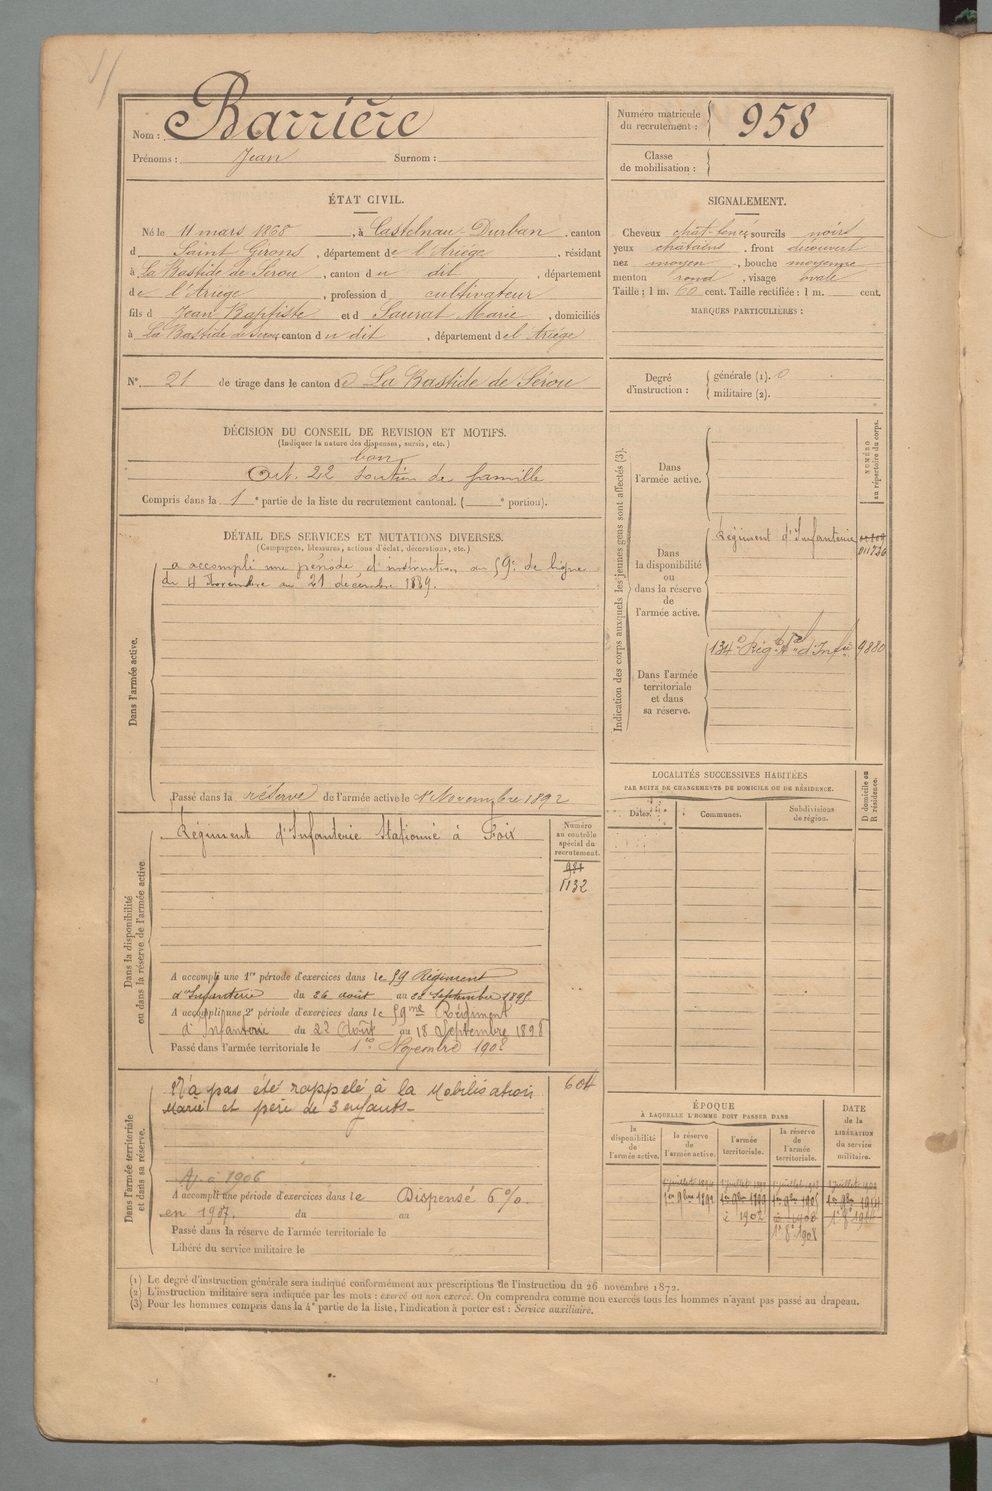 Nom : Barrière
Prénoms : Jean Surnom :
Numéro matricule
du recrutement : 958
Classe
de mobilisation :
ÉTAT CIVIL.
Né le 11 mars 1868, à Castelnau-Durban, canton
d Saint Girons, département de l'Ariège, résidant
à La Bastide de Sérou, canton du dit, département
de l'Ariège, profession d cultivateur
fils d Jean Baptiste et d Saurat Marie, domiciliés
à La Bastide de Sérou, canton du dit, département de l'Ariège
N° 21 de tirage dans le canton de La Bastide de Sérou
SIGNALEMENT.
Cheveux chat-foncé, sourcils noirs
yeux chatains, front découvert
nez moyen, bouche moyenne
menton rond, visage ovale
Taille : 1 m. 60 cent. Taille rectifiée : 1 m. cent.
MARQUES PARTICULIÈRES :
Degré
d'instruction :
générale (1). 0
militaire (2).
DÉCISION DU CONSEIL DE REVISION ET MOTIFS.
(Indiquer la nature des dispenses, sursis, etc.)
bon
Art. 22 soutien de famille
Compris dans la 1e partie de la liste du recrutement cantonal. ( e portion).
DÉTAIL DES SERVICES ET MUTATIONS DIVERSES.
(Campagnes, blessures, actions d'éclat, décorations, etc.)
Dans l'armée active.
a accompli une période d'instruction au 59e de ligne
du 4 Novembre au 21 décembre 1889.
Passé dans la réserve de l'armée active le 1er Novembre 1892
Indication des corps auxquels les jeunes gens sont affectés (3).
NUMÉRO
au répertoire du corps.
Dans
l'armée active.
Dans
la disponibilité
ou
dans la réserve
de
l'armée active.
Régiment d'Infanterie
Dans l'armée
territoriale
et dans
sa réserve.
134e Rég. d'Inf. 9880
Dans la disponibilité
ou dans la réserve de l'armée active
Régiment d'Infanterie Stationné à Foix
Numéro
au contrôle
spécial du
recrutement.
1132
A accompli une 1re période d'exercices dans le 59 Régiment
d'Infanterie du 26 août au 22 Septembre 1895
A accompli une 2e période d'exercices dans le 59me Régiment
d'Infanterie du 22 Août au 18 Septembre 1898
Passé dans l'armée territoriale le 1er Novembre 1902
LOCALITÉS SUCCESSIVES HABITÉES
PAR SUITE DE CHANGEMENTS DE DOMICILE OU DE RÉSIDENCE.
Dates. Communes. Subdivisions
de région.
D domicile ou
R résidence.
Dans l'armée territoriale
et dans sa réserve.
N'a pas été rappelé à la Mobilisation 604
Marié et père de 3 enfants
Aj. à 1906
A accompli une période d'exercices dans le Dispensé 6 %.
en 1907. du au
Passé dans la réserve de l'armée territoriale le
Libéré du service militaire le
ÉPOQUE
À LAQUELLE L'HOMME DOIT PASSER DANS
DATE
de la
LIBÉRATION
du service
militaire.
la
disponibilité
de
l'armée active.
la réserve
de
l'armée active.
l'armée
territoriale.
la réserve
de
l'armée
territoriale.
1er 9bre 1892
1902
1908
(1) Le degré d'instruction générale sera indiqué conformément aux prescriptions de l'instruction du 26 novembre 1872.
(2) L'instruction militaire sera indiquée par les mots : exercé ou non exercé. On comprendra comme non exercés tous les hommes n'ayant pas passé au drapeau.
(3) Pour les hommes compris dans la 4e partie de la liste, l'indication à porter est : Service auxiliaire.